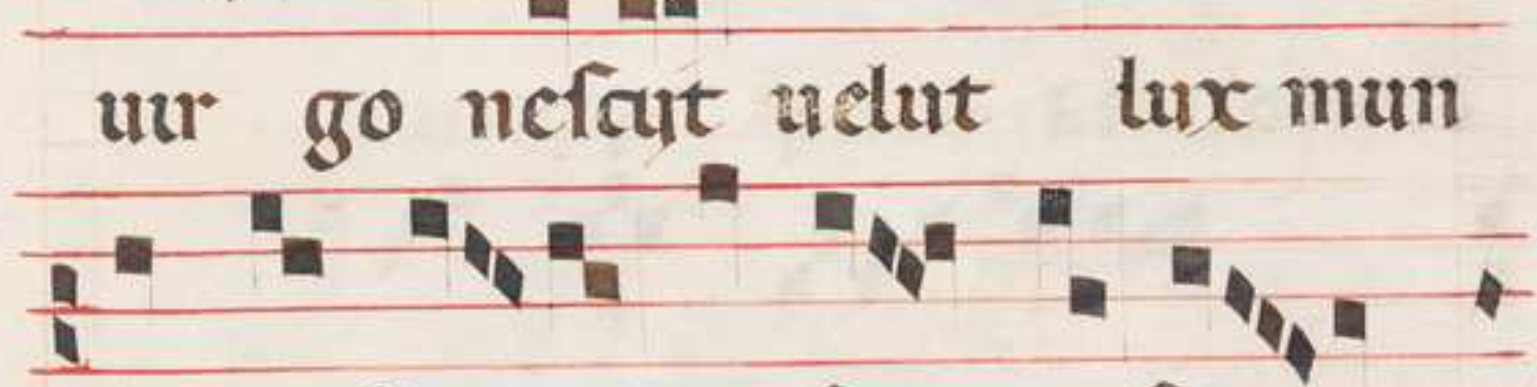 uir go nescijt uelut lux mun